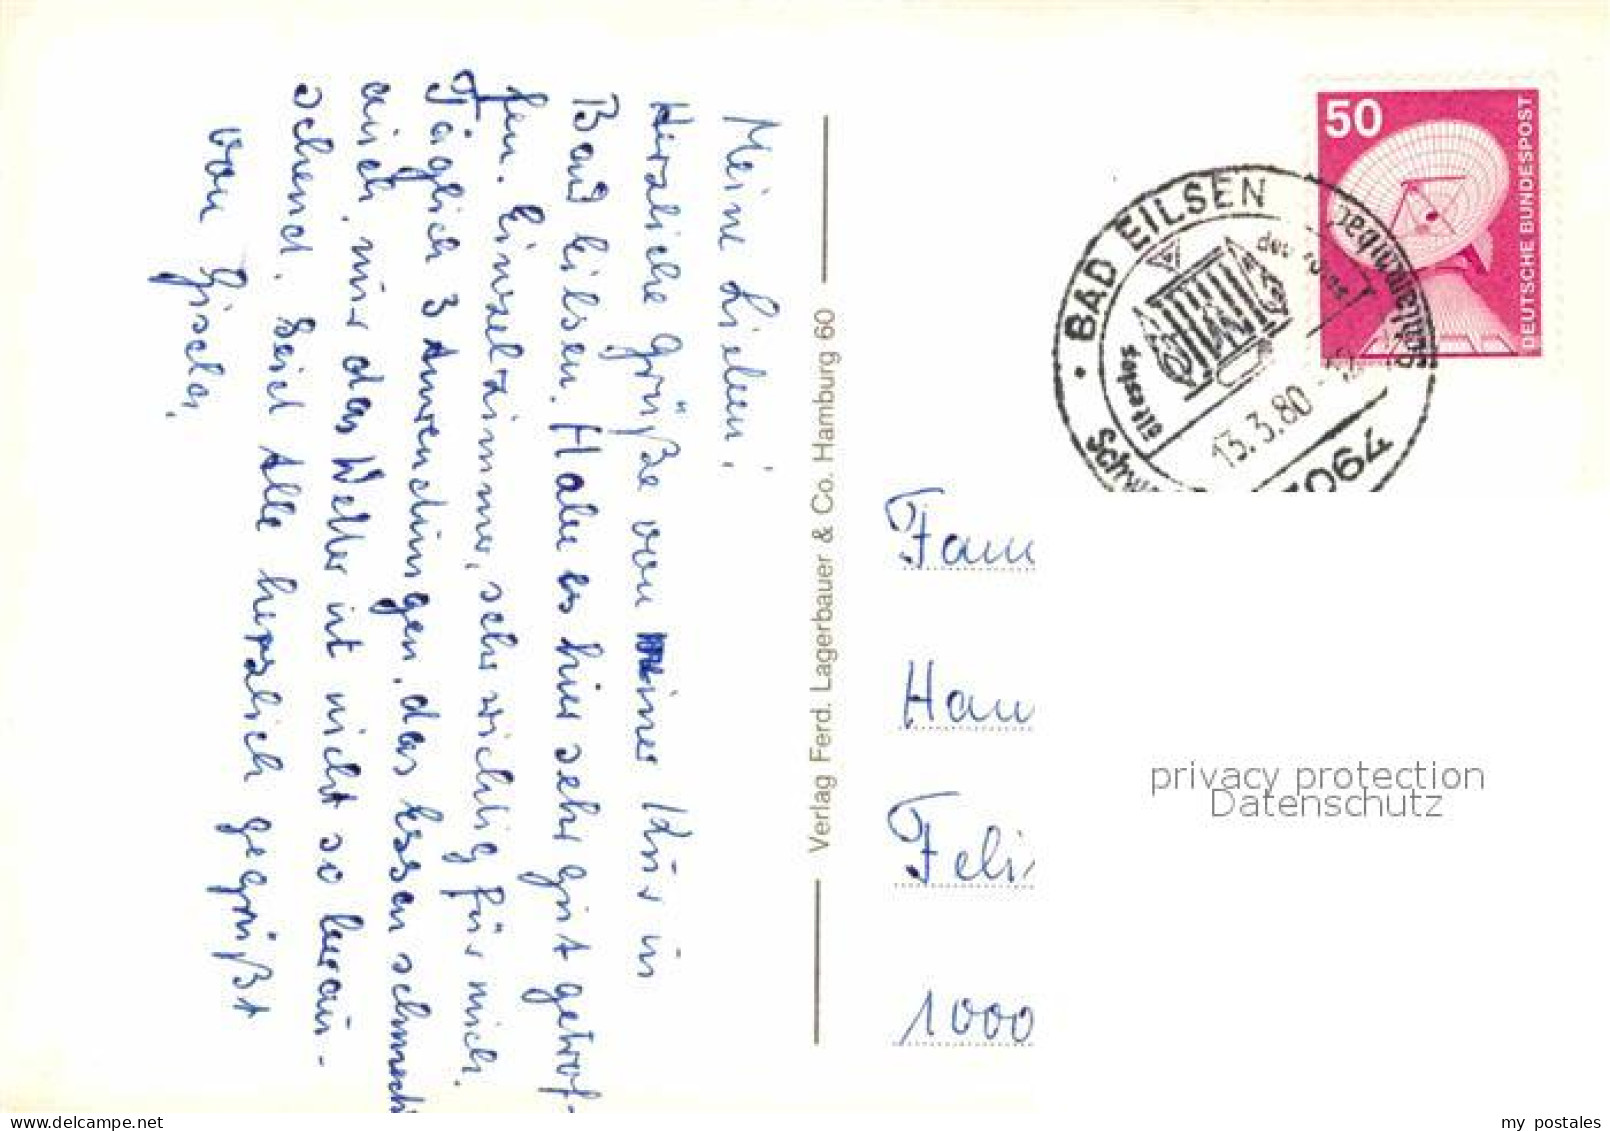 Meine Lieben!
Herzliche Grüße von meiner Kur in
Bad Eilsen. Habe es hier sehr gut getrof-
fen. Einzelzimmer, sehr wichtig für mich.
Täglich 3 Anwendungen, das Essen schmeckt
auch, nur das Wetter ist nicht so berau-
schend. Seid Alle herzlich gegrüßt
von Gisela.
Verlag Ferd. Lagerbauer & Co. Hamburg 60
50
DEUTSCHE BUNDESPOST
BAD EILSEN
ältestes
13.3.80
3064
Schw
Fam
Ham
Feli
1000
privacy protection
Datenschutz
my postales